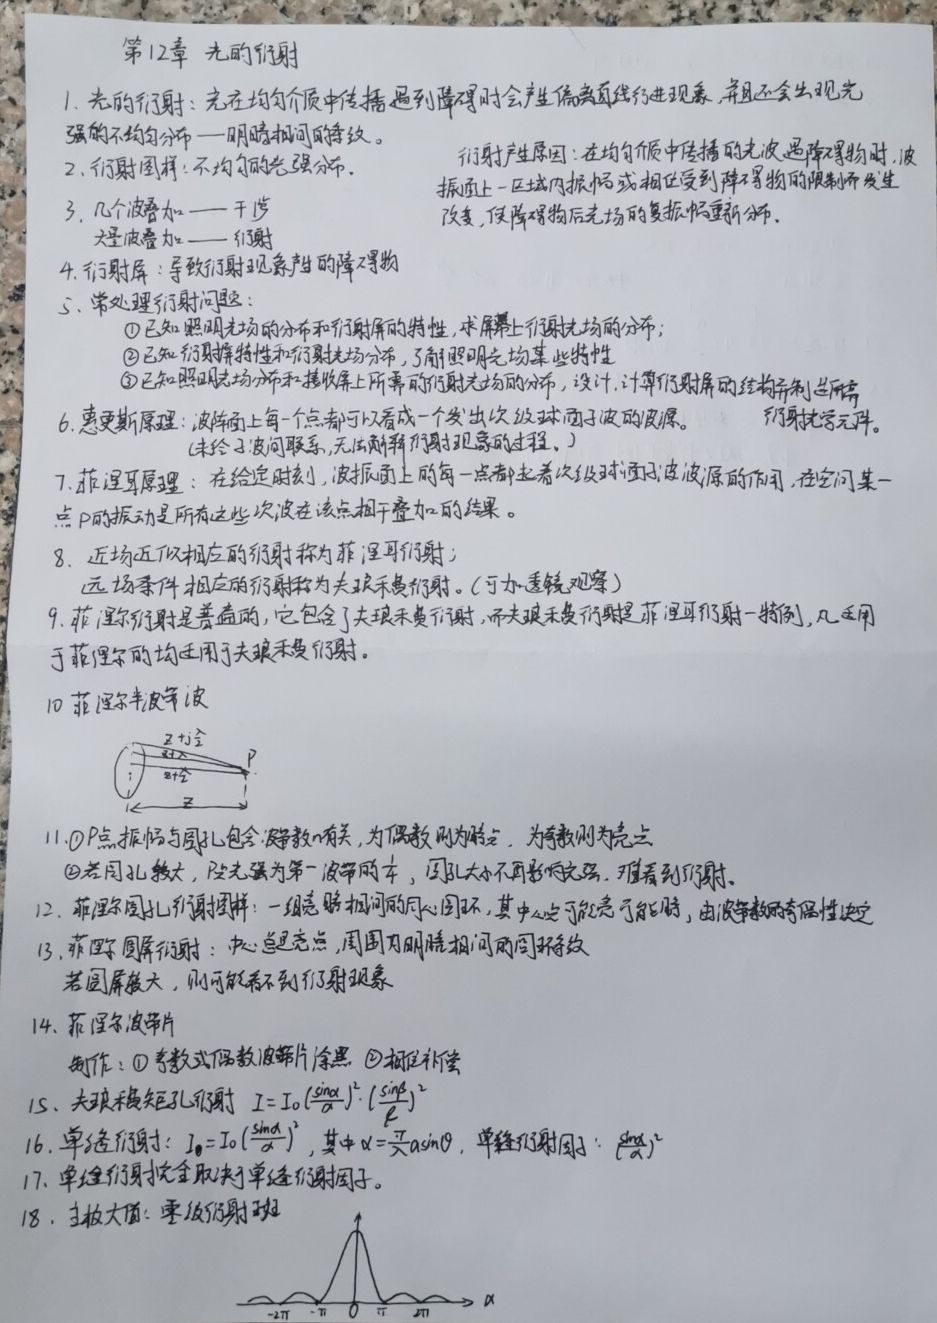 第12章 光的衍射
1. 光的衍射：光在均匀介质中传播遇到障碍时会产生偏离直线行进现象，并且还会出现光
强的不均匀分布——明暗相间的条纹。
2. 衍射图样：不均匀的光强分布.
衍射产生原因：在均匀介质中传播的光波遇障碍物时，波
振面上一区域内振幅或相位受到障碍物的限制而发生
改变，使障碍物后光场的复振幅重新分布.
3. 几个波叠加——干涉
大量波叠加——衍射
4. 衍射屏：导致衍射现象产生的障碍物
5. 常处理衍射问题：
①已知照明光场的分布和衍射屏的特性，求屏幕上衍射光场的分布；
②已知衍射屏特性和衍射光场分布，了解照明光场某些特性
③已知照明光场分布和接收屏上所需的衍射光场的分布，设计，计算衍射屏的结构并制造所需
衍射光学元件。
6. 惠更斯原理：波阵面上每一个点都可以看成一个发出次级球面子波的波源。
（未给子波间联系，无法解释衍射现象的过程。）
7. 菲涅耳原理：在给定时刻，波振面上的每一点都起着次级球面子波波源的作用，在空间某一
点P的振动是所有这些次波在该点相干叠加的结果。
8. 近场近似相应的衍射称为菲涅耳衍射；
远场条件相应的衍射称为夫琅禾费衍射。（可加透镜观察）
9. 菲涅尔衍射是普遍的，它包含了夫琅禾费衍射，而夫琅禾费衍射是菲涅耳衍射一特例，凡适用
于菲涅尔的均适用于夫琅禾费衍射。
10 菲涅尔半波带波
z+j λ/2
z+λ
z+λ/2
P
z
11. ①P点振幅与圆孔包含波带数n有关，为偶数则为暗点，为奇数则为亮点
②若圆孔较大，P处光强为第一波带的1/4，圆孔大小不再影响光强，难看到衍射。
12. 菲涅尔圆孔衍射图样：一组亮暗相间的同心圆环，其中心点可能亮可能暗，由波带数的奇偶性决定
13. 菲涅尔圆屏衍射：中心总是亮点，周围为明暗相间的圆环条纹
若圆屏较大，则可能看不到衍射现象
14. 菲涅尔波带片
制作：①奇数或偶数波带片涂黑 ②相位补偿
15. 夫琅禾费矩孔衍射 I=I₀(sinα/α)²·(sinβ/β)²
16. 单缝衍射：Iθ=I₀(sinα/α)²，其中α=π/λ asinθ，单缝衍射因子：(sinα/α)²
17. 单缝衍射完全取决于单缝衍射因子。
18. 主极大值：零级衍射斑
-2π -π 0 π 2π α